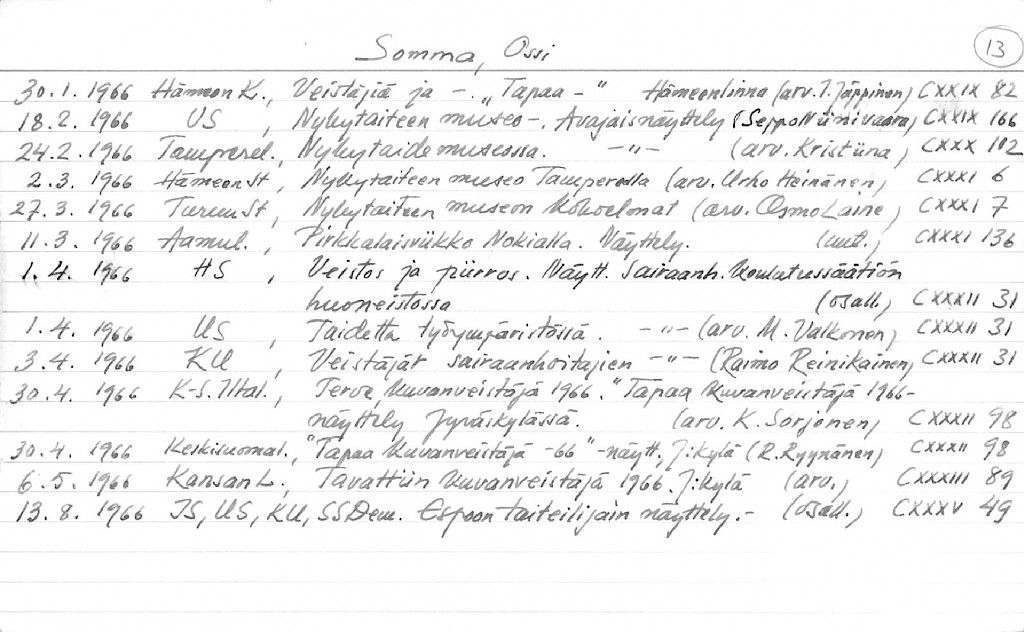 Somma, Ossi
13
30.1.1966 Hämeen K., Veistäjiä ja -. „Tapaa -" Hämeenlinna (arv. I. Jäppinen) CXXIX 82
18.2.1966 US, Nykytaiteen museo -. Avajaisnäyttely (Seppo Niinivaara) CXXIX 166
24.2.1966 Tamperel., Nykytaide museossa. -"- (arv. Kristiina) CXXX 112
2.3.1966 Hämeen St, Nykytaiteen museo Tampereella (arv. Urho Heinänen) CXXXI 6
27.3.1966 Turun St, Nykytaiteen museon kokoelmat (arv. Osmo Laine) CXXXI 7
11.3.1966 Aamul., Pirkkalaisviikko Nokialla. Näyttely. (uut.) CXXXI 136
1.4.1966 HS, Veistos ja piirros. Näytt. Sairaanh. Koulutussäätiön
huoneistossa (osall.) CXXXII 31
1.4.1966 US, Taidetta työympäristössä. -"- (arv. M. Valkonen) CXXXII 31
3.4.1966 KU, Veistäjät sairaanhoitajien -"- (Raimo Reinikainen) CXXXII 31
30.4.1966 K-S. Iltal., Terve, kuvanveistäjä 1966. "Tapaa kuvanveistäjä 1966-
näyttely Jyväskylässä. (arv. K. Sorjonen) CXXXII 98
30.4.1966 Keskisuomal., "Tapaa kuvanveistäjä -66" -näytt., J:kylä (R. Ryynänen) CXXXII 98
6.5.1966 Kansan L., Tavattiin kuvanveistäjä 1966. J:kylä (arv.) CXXXIII 89
13.8.1966 IS, US, KU, SSDem. Espoon taiteilijain näyttely. - (osall.) CXXXV 49